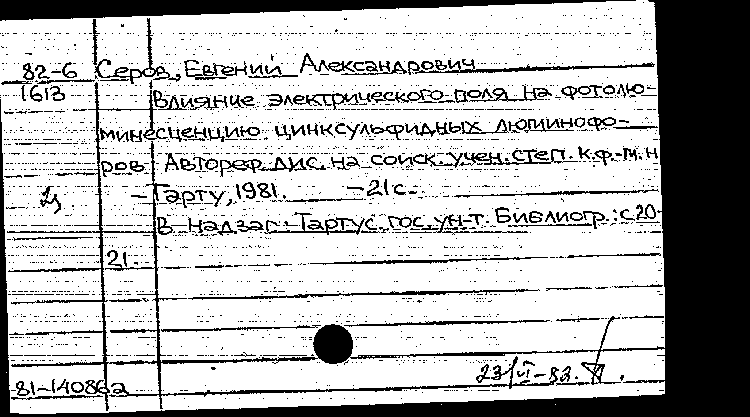 82-6 Серов, Евгений Александрович
1613 Влияние электрического поля на фотолю-
минесценцию цинксульфидных люминофо-
ров. Автореф. дис. на соиск. учен. степ. к.ф.-м.н
— Тарту, 1981. — 21 с.
В надзаг.: Тартус. гос. ун-т. Библиогр.: с 20-
21.
23/VI-82.
81-14086а